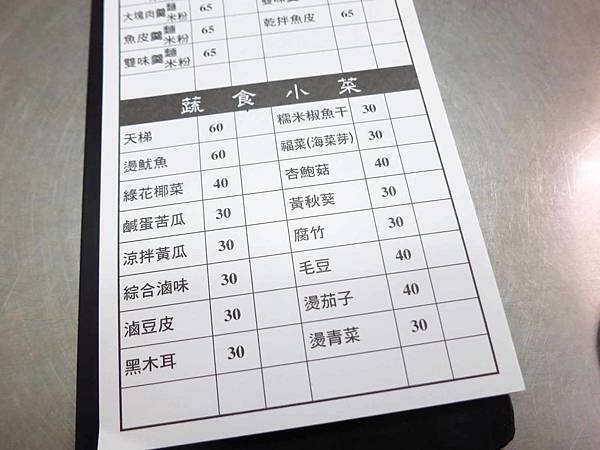 大塊肉羹麵米粉 65 雙味
魚皮羹麵米粉 65 乾拌魚皮 65
雙味羹麵米粉 65
蔬食小菜
天梯 60 糯米椒魚干 30
燙魷魚 60 福菜(海菜芽) 30
綠花椰菜 40 杏鮑菇 40
鹹蛋苦瓜 30 黃秋葵 30
涼拌黃瓜 30 腐竹 30
綜合滷味 30 毛豆 40
滷豆皮 30 燙茄子 40
黑木耳 30 燙青菜 30